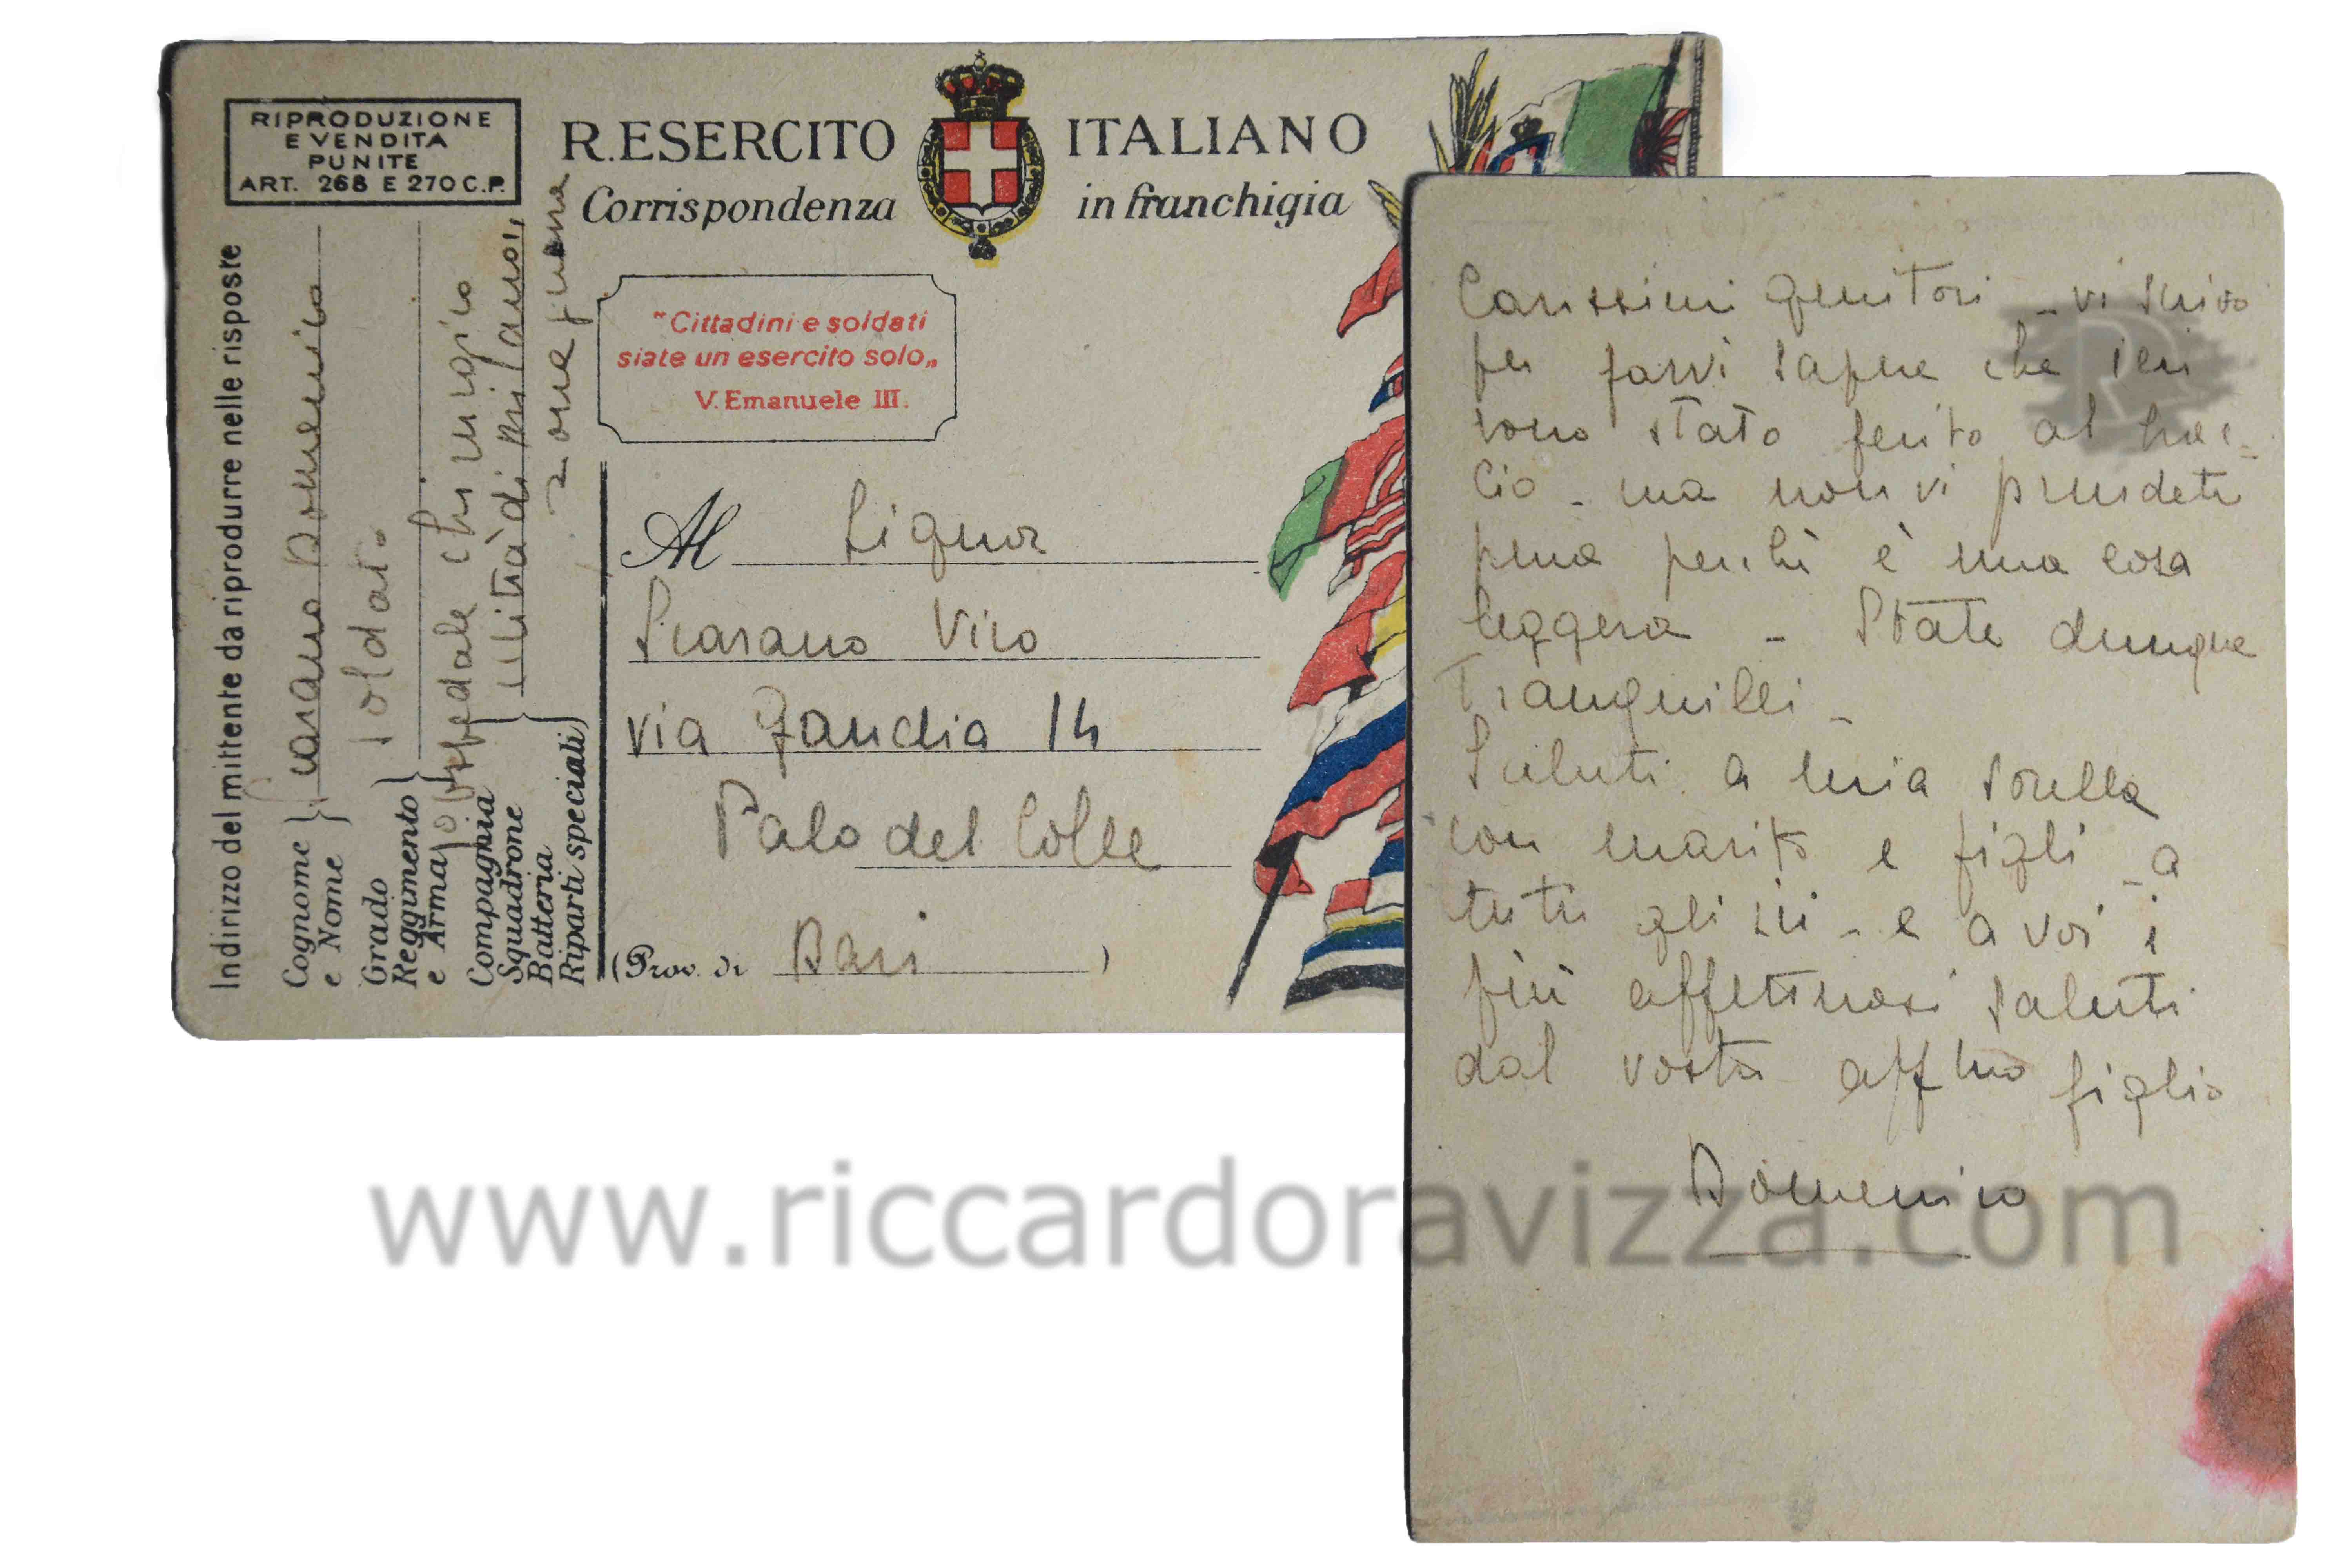 RIPRODUZIONE
E VENDITA
PUNITE
ART. 268 E 270 C.P.
R. ESERCITO ITALIANO
Corrispondenza in franchigia
"Cittadini e soldati
siate un esercito solo„
V. Emanuele III.
Indirizzo del mittente da riprodurre nelle risposte
Cognome e Nome } Scarano Domenico
Grado
Reggimento
e Arma } soldat.
Compagnia
Squadrone
Batteria
Riparti speciali } ospedale chirurgico
città di Milano,
zona guerra
Al Signor
Scarano Vito
via Gaudia 14
Palo del Colle
(Prov. di Bari)
Carissimi genitori - vi scrivo
per farvi sapere che ieri
sono stato ferito al brac=
cio - ma non vi prendete
pena perchè è una cosa
leggera - State dunque
Tranquilli -
Saluti a mia sorella
con marito e figli - a
tutti gli zii - e a voi i
più affettuosi saluti
dal vostro affmo figlio
Domenico
www.riccardoravizza.com